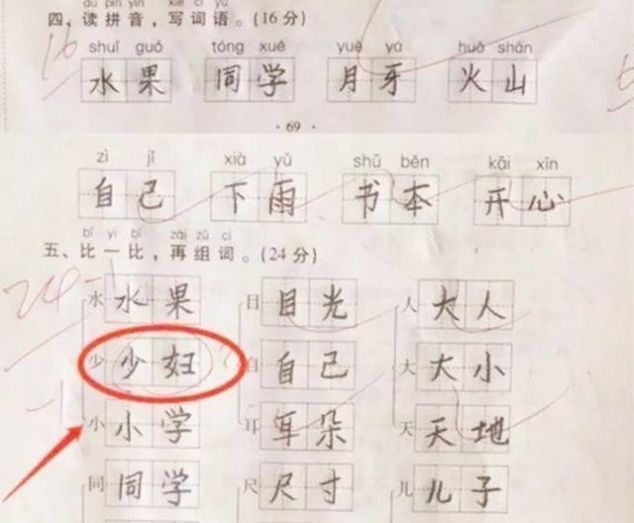 dú pīn yīn xiě cí yǔ
四、读拼音，写词语。(16分)
16
shuǐ guǒ tóng xué yuè yá huǒ shān
水果 同学 月牙 火山
·69·
zì jǐ xià yǔ shū běn kāi xīn
自己 下雨 书本 开心
bǐ yi bǐ zài zǔ cí
五、比一比，再组词。(24分)
水 水果 目 目光 人 大人
少 少妇 自 自己 大 大小
小 小学 耳 耳朵 天 天地
同 同学 尺 尺寸 儿 儿子